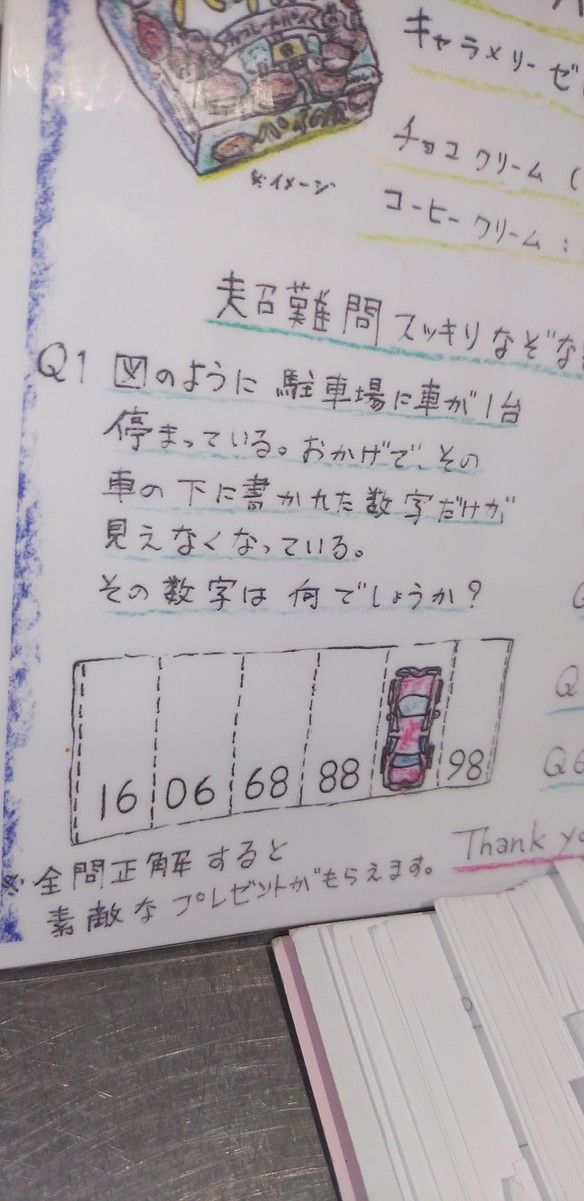 パイの実
※イメージ
キャラメリーゼ
チョコクリーム (
コーヒークリーム :
超難問スッキリなぞな
Q1 図のように駐車場に車が1台
停まっている。おかげで、その
車の下に書かれた数字だけが
見えなくなっている。
その数字は何でしょうか?
16 06 68 88 98
Q
Q6
※全問正解すると
素敵なプレゼントがもらえます。
Thank yo